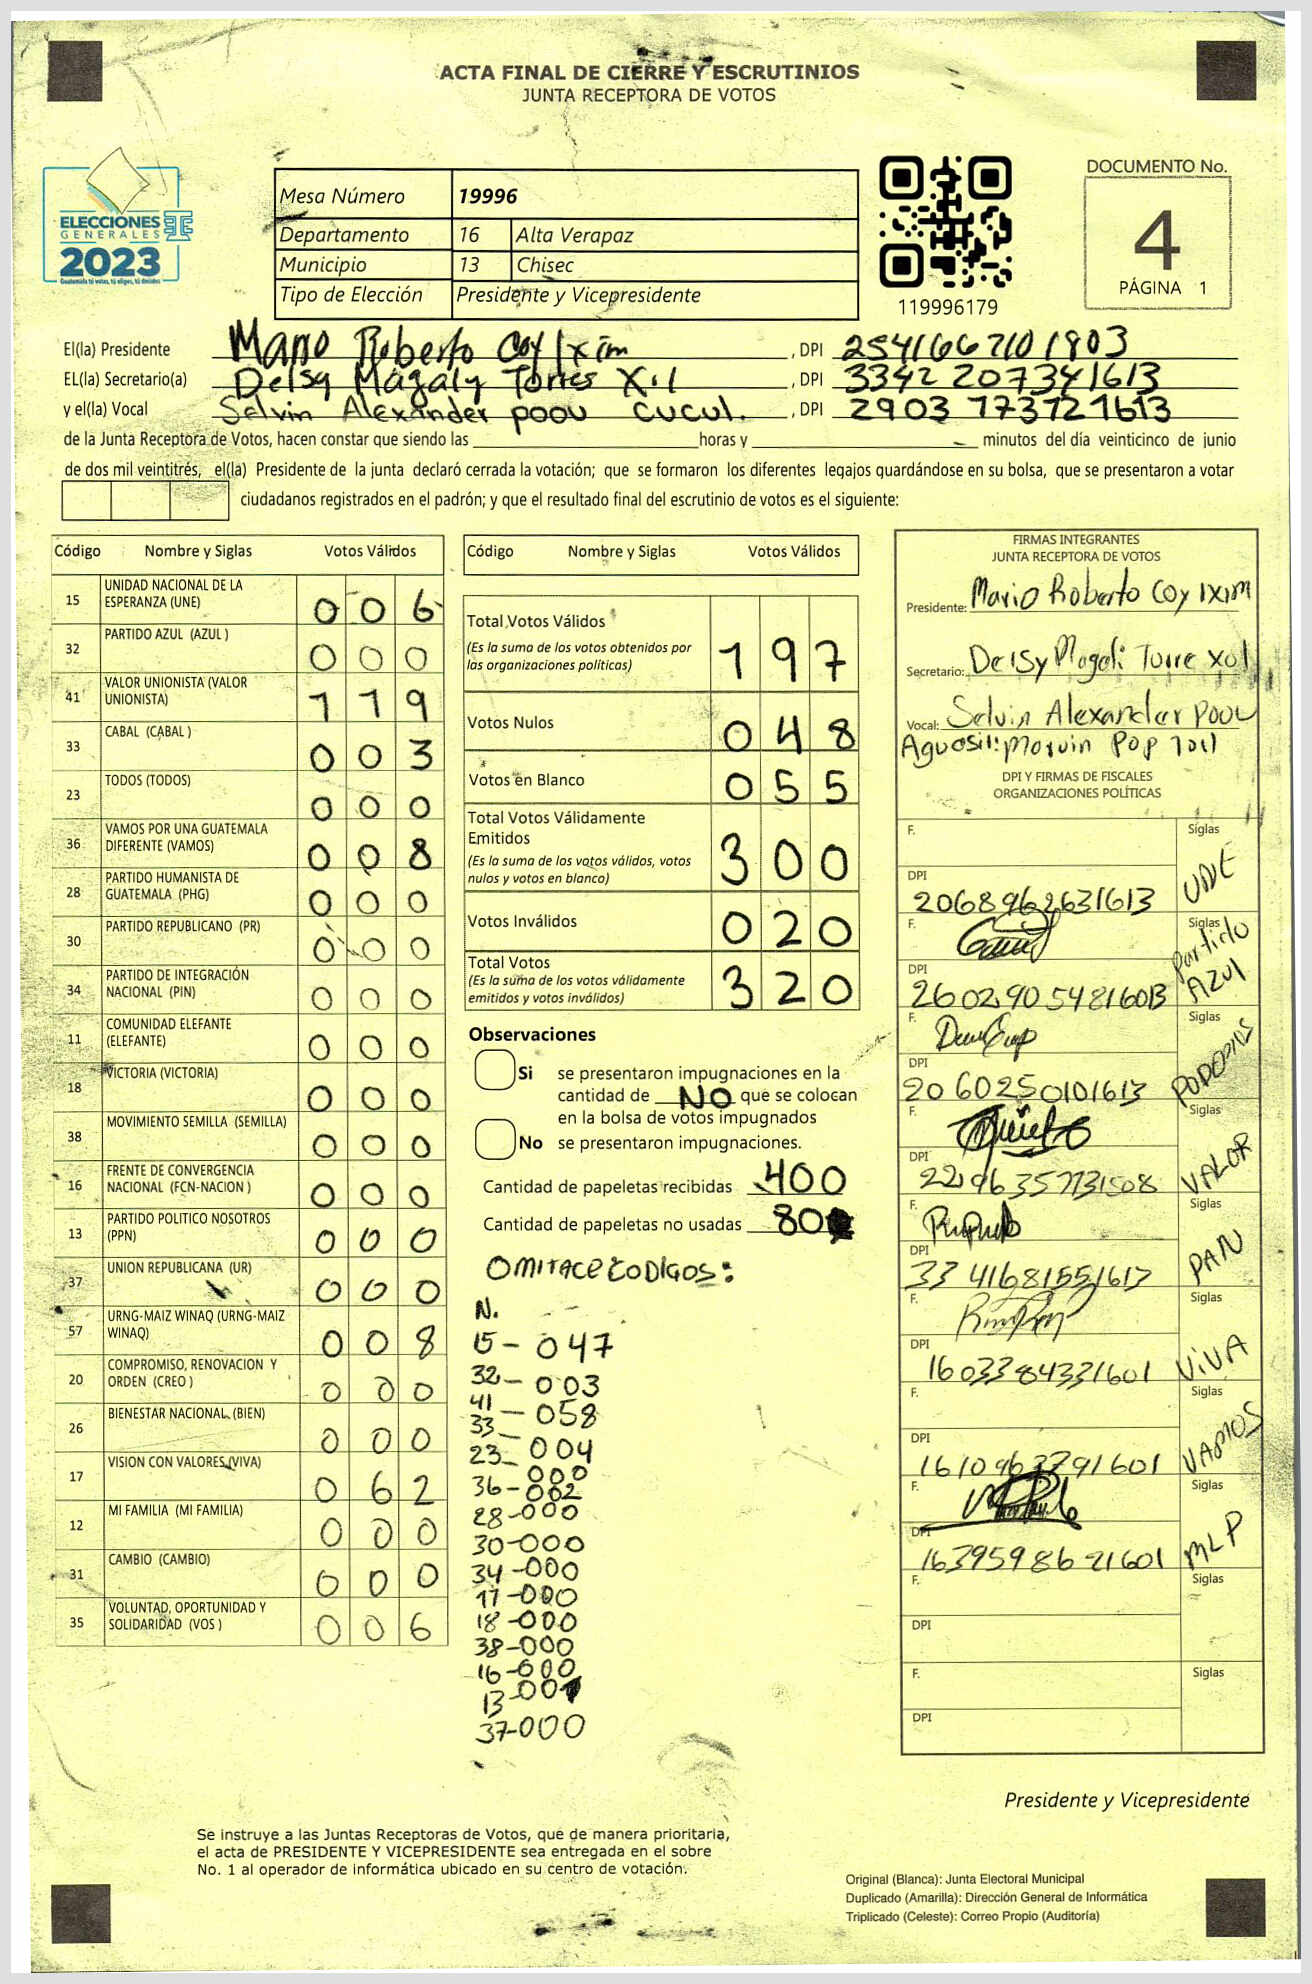 ACTA FINAL DE CIERRE Y ESCRUTINIOS
JUNTA RECEPTORA DE VOTOS
ELECCIONES
GENERALES
2023
Guatemala tú votas, tú eliges, tú decides
Mesa Número 19996
Departamento 16 Alta Verapaz
Municipio 13 Chisec
Tipo de Elección Presidente y Vicepresidente
119996179
DOCUMENTO No.
4
PÁGINA 1
El(la) Presidente Mario Roberto Coy Ixim , DPI 2541667101803
EL(la) Secretario(a) Delsy Magaly Torres Xol , DPI 3342 207341613
y el(la) Vocal Selvin Alexander POOU CUCUL. , DPI 2903 173721613
de la Junta Receptora de Votos, hacen constar que siendo las horas y minutos del día veinticinco de junio
de dos mil veintitrés, el(la) Presidente de la junta declaró cerrada la votación; que se formaron los diferentes legajos guardándose en su bolsa, que se presentaron a votar
ciudadanos registrados en el padrón; y que el resultado final del escrutinio de votos es el siguiente:
Código Nombre y Siglas Votos Válidos
15 UNIDAD NACIONAL DE LA ESPERANZA (UNE) 0 0 6
32 PARTIDO AZUL (AZUL ) 0 0 0
41 VALOR UNIONISTA (VALOR UNIONISTA) 1 1 9
33 CABAL (CABAL ) 0 0 3
23 TODOS (TODOS) 0 0 0
36 VAMOS POR UNA GUATEMALA DIFERENTE (VAMOS) 0 0 8
28 PARTIDO HUMANISTA DE GUATEMALA (PHG) 0 0 0
30 PARTIDO REPUBLICANO (PR) 0 0 0
34 PARTIDO DE INTEGRACIÓN NACIONAL (PIN) 0 0 0
11 COMUNIDAD ELEFANTE (ELEFANTE) 0 0 0
18 VICTORIA (VICTORIA) 0 0 0
38 MOVIMIENTO SEMILLA (SEMILLA) 0 0 0
16 FRENTE DE CONVERGENCIA NACIONAL (FCN-NACION ) 0 0 0
13 PARTIDO POLITICO NOSOTROS (PPN) 0 0 0
37 UNION REPUBLICANA (UR) 0 0 0
57 URNG-MAIZ WINAQ (URNG-MAIZ WINAQ) 0 0 8
20 COMPROMISO, RENOVACION Y ORDEN (CREO ) 0 0 0
26 BIENESTAR NACIONAL (BIEN) 0 0 0
17 VISION CON VALORES (VIVA) 0 6 2
12 MI FAMILIA (MI FAMILIA) 0 0 0
31 CAMBIO (CAMBIO) 0 0 0
35 VOLUNTAD, OPORTUNIDAD Y SOLIDARIDAD (VOS ) 0 0 6
Código Nombre y Siglas Votos Válidos
Total Votos Válidos
(Es la suma de los votos obtenidos por
las organizaciones políticas) 1 9 7
Votos Nulos 0 4 8
Votos en Blanco 0 5 5
Total Votos Válidamente
Emitidos
(Es la suma de los votos válidos, votos
nulos y votos en blanco) 3 0 0
Votos Inválidos 0 2 0
Total Votos
(Es la suma de los votos válidamente
emitidos y votos inválidos) 3 2 0
Observaciones
Si se presentaron impugnaciones en la
cantidad de NO que se colocan
en la bolsa de votos impugnados
No se presentaron impugnaciones.
Cantidad de papeletas recibidas 400
Cantidad de papeletas no usadas 80
OMITACE CODIGOS:
N.
15- 047
32- 003
41 - 058
33
23- 004
36- 000
002
28-000
30-000
34-000
11-000
18-000
38-000
16-000
13-001
37-000
FIRMAS INTEGRANTES
JUNTA RECEPTORA DE VOTOS
Presidente: Mario Roberto Coy Ixim
Secretario: Delsy Magali Torre Xol
Vocal: Selvin Alexander POOU
Aguosil: Marvin Pop
DPI Y FIRMAS DE FISCALES
ORGANIZACIONES POLÍTICAS
F. Siglas UNE
DPI 2068962631613
F. Siglas Partido AZUL
DPI 2602905481603
F. Siglas PODEMOS
DPI 2060250101613
F. Siglas VALOR
DPI 2296357731508
F. Siglas PAN
DPI 3341681551617
F. Siglas VIVA
DPI 1603384331601
F. Siglas VAMOS
DPI 1610963791601
F. Siglas MLP
DPI 1639598621601
F. Siglas
DPI
F. Siglas
DPI
Presidente y Vicepresidente
Se instruye a las Juntas Receptoras de Votos, que de manera prioritaria,
el acta de PRESIDENTE Y VICEPRESIDENTE sea entregada en el sobre
No. 1 al operador de informática ubicado en su centro de votación.
Original (Blanca): Junta Electoral Municipal
Duplicado (Amarilla): Dirección General de Informática
Triplicado (Celeste): Correo Propio (Auditoría)